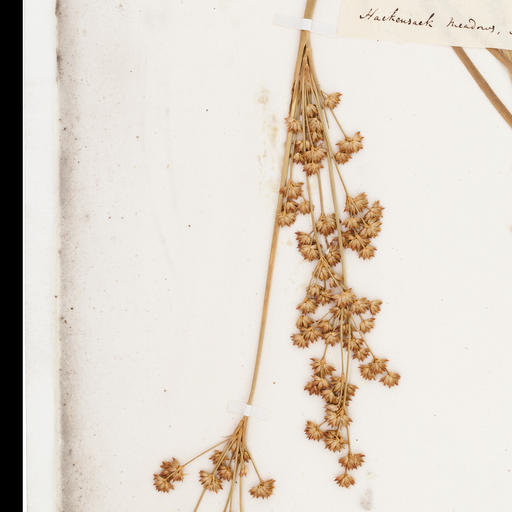 Hackensack meadows,